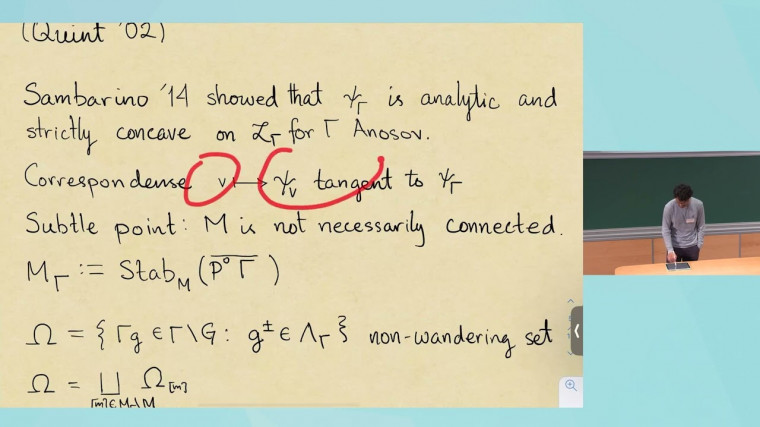 (Quint '02)
Sambarino '14 showed that ψ_Γ is analytic and
strictly concave on ℒ_Γ for Γ Anosov.
Correspondense v ⟼ ψ_v tangent to ψ_Γ
Subtle point: M is not necessarily connected.
M_Γ := Stab_M (\overline{P°Γ})
Ω = {Γg ∈ Γ\G : g^± ∈ Λ_Γ} non-wandering set
Ω = ⨆ Ω_[m]
[m]∈M_Γ\M